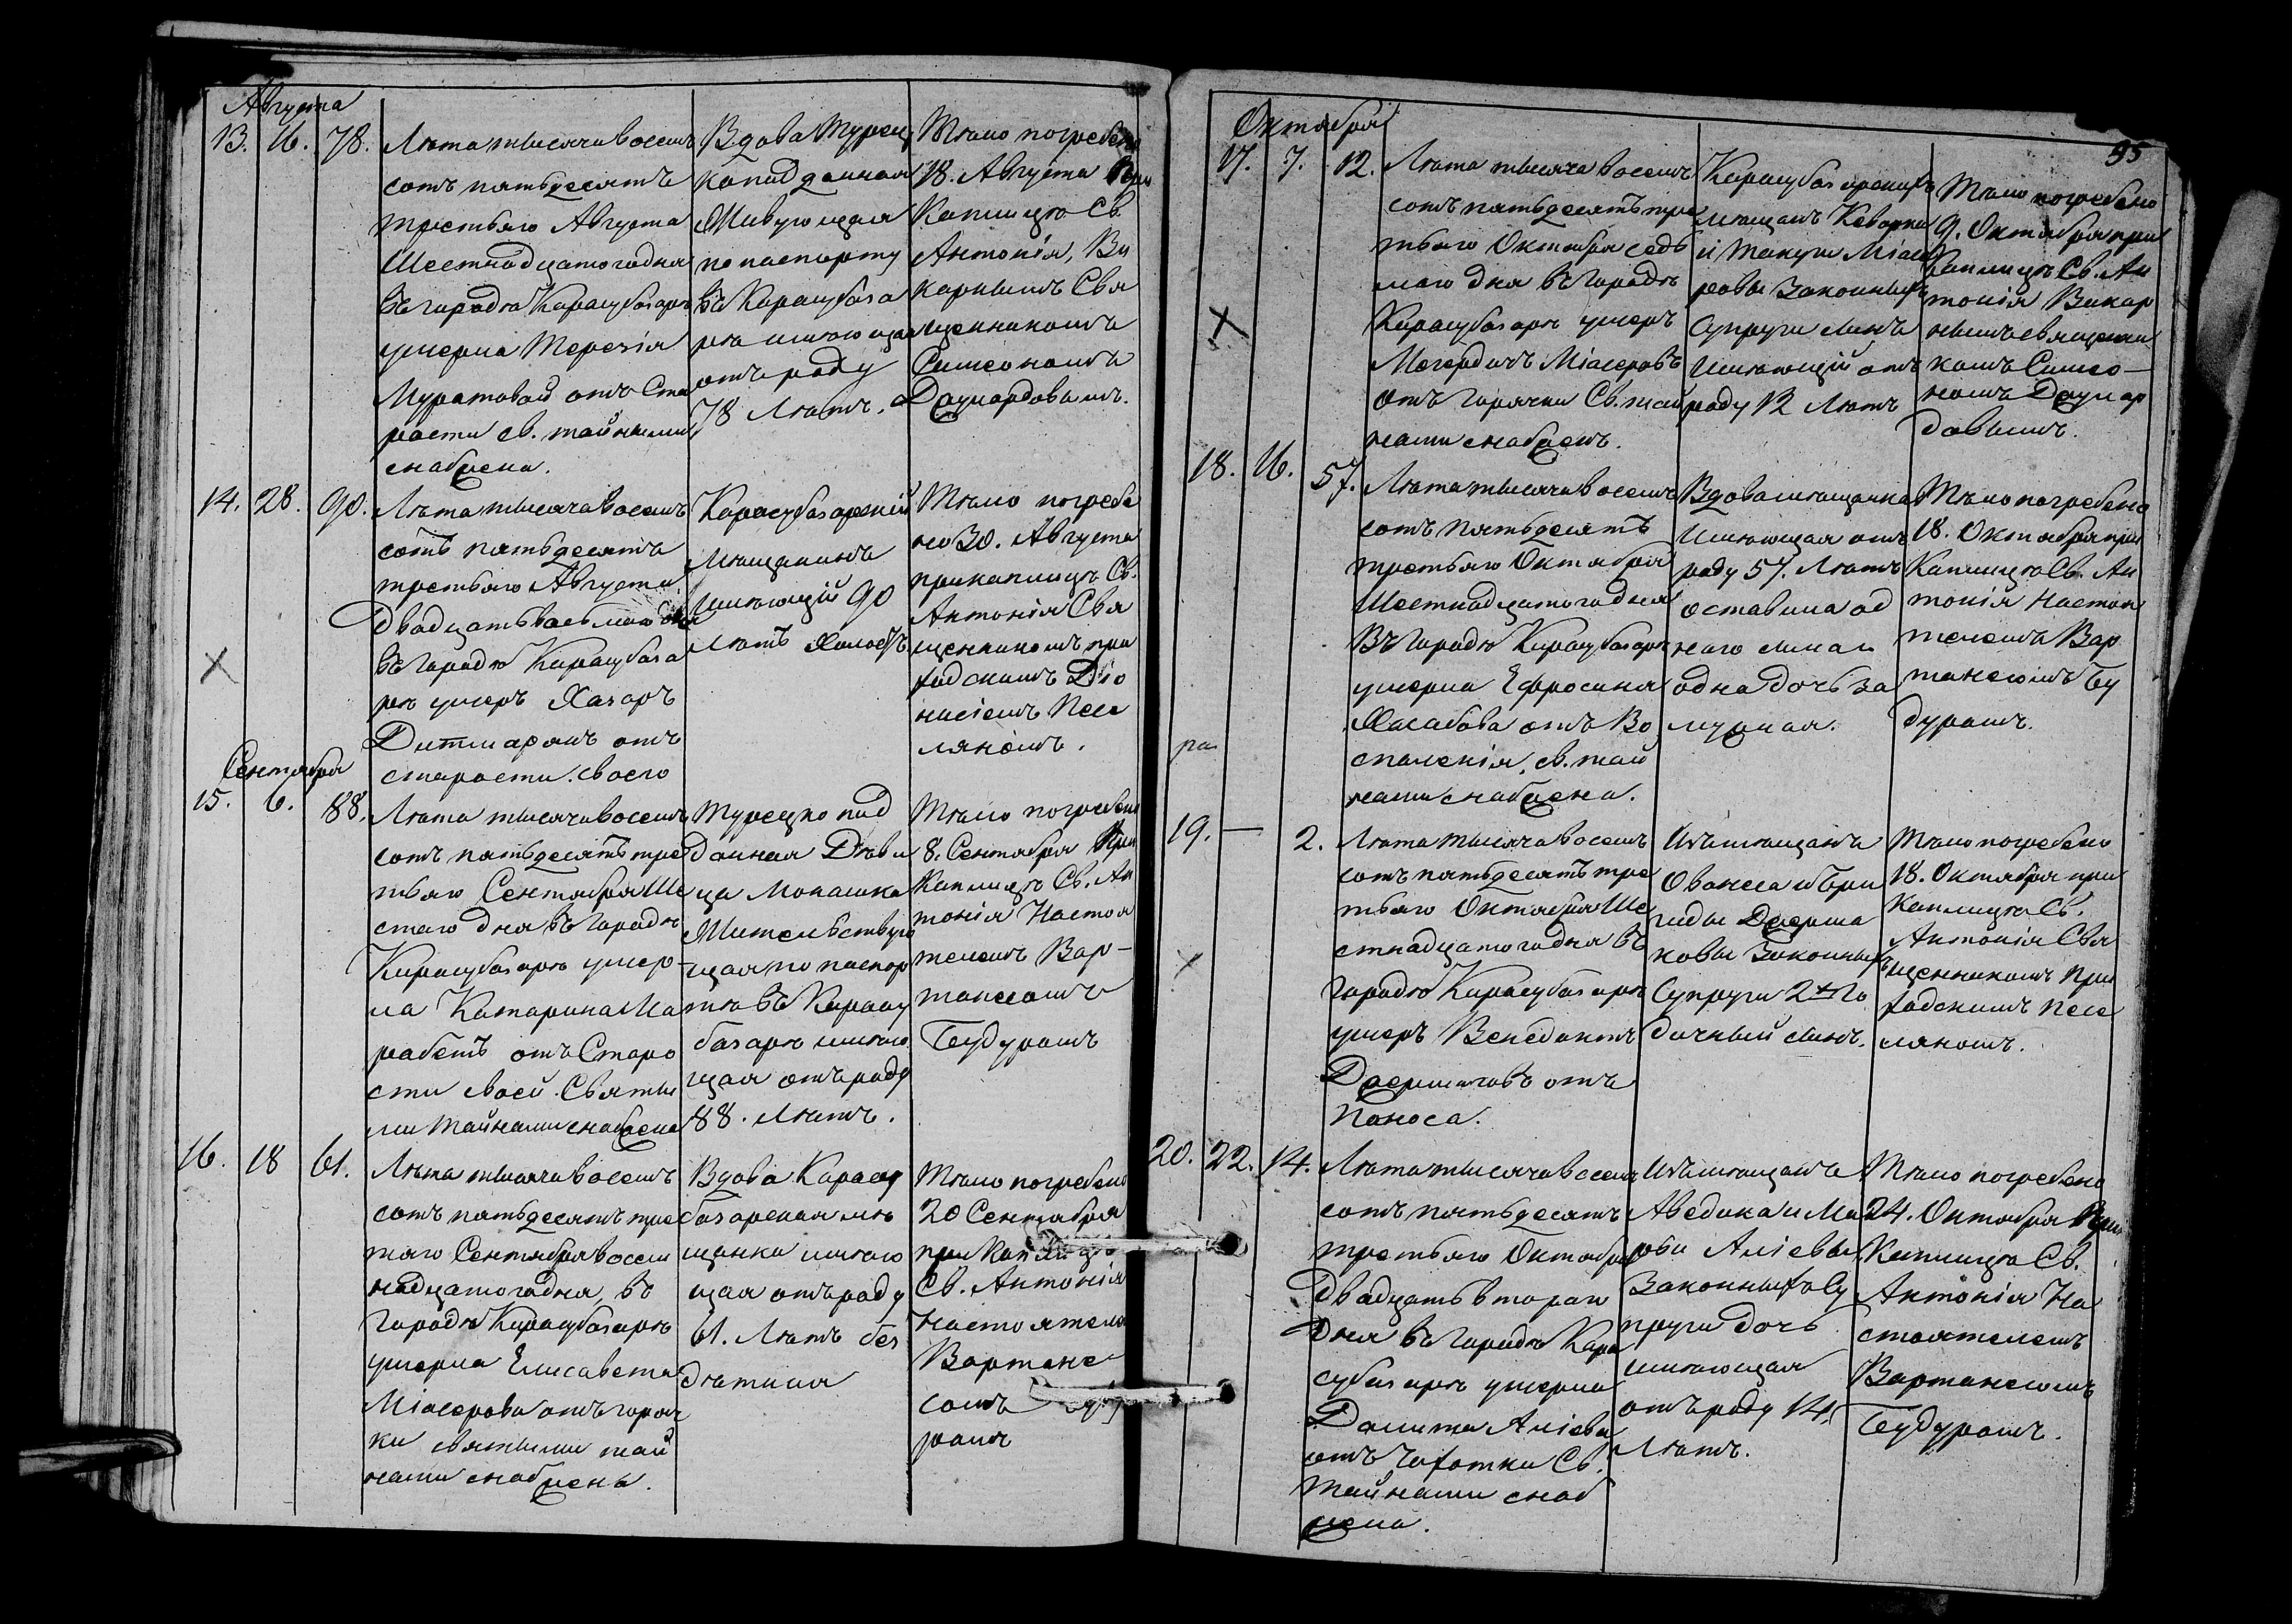 Августа
13. 16. 78.
Лѣта тысяча восемь
сотъ пятьдесятъ
третьяго Августа
Шестнадцатого дня
въ городѣ Карасубазарѣ
умерла Терезія
Муратовой отъ Ста
рости св. тайнами
снабжена.
Вдова Турец
каподданная
Живующая
по паспорту
въ Карасубаза
рѣ имѣющая
отъ роду
78 Лѣтъ.
Тѣло погребено
18. Августа При
Каплицѣ Св.
Антонія, Ви
карнымъ Свя
щенникомъ
Симеономъ
14. 28. 90.
Лѣта тысяча восемь
сотъ пятьдесятъ
третьяго Августа
Двадцать восьмаго дня
въ Городѣ Карасубаза
рѣ умеръ Хазаръ
отъ
старости своего
Карасубазарскій
Мѣщанинъ
Имѣющій 90
лѣтъ Холостъ
Тѣло погребе
но 30. Августа
при каплицѣ Св.
Антонія Свя
щенникомъ при
ходскимъ Dіо
нисіемъ
Сентября
15. 6. 88.
Лѣта тысяча восемь
сотъ пятьдесятъ тре
тьяго Сентября Ше
стаго дня въ Городѣ
Карасубазарѣ умер-
ла Катарина Ма
рабетъ отъ Старо
сти своей. Святы
ми Тайнами снабжена
Турецко под
данная Дѣви
ца Монашка
Жительствую
щая по паспор
ту въ Карасу
базарѣ имѣю
щая отъ роду
88. Лѣтъ.
Тѣло погребено
8. Сентября При
Каплицѣ Св. Ан
тонія Настоя
телемъ Вар-
танесомъ
16. 18 61.
Лѣта тысяча восемь
сотъ пятьдесятъ тре
тяго Сентября восем
надцатого дня, въ
Городѣ Карасубазарѣ
умерла Елисавета
Міасерова отъ горяч
ки святыми тай
нами снабжена.
Вдова Карасу
базарская мѣ
щанка имѣю
щая отъ роду
61. Лѣтъ без
дѣтная
Тѣло погребено
20 Сентября
при Каплицѣ
Св. Антонія
Настоятеле
Вартане
сомъ
ромъ
95
Октября
17. 7. 12.
Лѣта тысяча восемь
сотъ пятьдесятъ тре
тьяго Октября седь
маго дня въ Городѣ
Карасубазарѣ умеръ
Могердичъ Міасеровъ
отъ Горячки Св. тай
нами снабженъ.
Карасубазарскихъ
мѣщанъ Кеворка
и Такуги Міасе
ровы Законныхъ
Супруги сынъ
Имѣющій отъ
роду 12 Лѣтъ
Тѣло погребено
9. Октября при
Каплицѣ Св. Ан
тонія Викар
нымъ священни
комъ Симео-
номъ
18. 16. 57.
Лѣта тысяча восемь
сотъ пятьдесятъ
третьяго Октября
Шестнадцатого дня
Въ Городѣ Карасубазарѣ
умерла Ефросиния
Хасабова отъ Во
спаленія, св. тай
нами снабжена.
Вдова мѣщанка
Имѣющая отъ
роду 57. Лѣтъ
оставила од
ного сына и
одна дочь за
мужная.
Тѣло погребено
18. Октября при
Каплицѣ Св. Ан
тонія Настоя
телемъ Вар
танесомъ Бу
дуромъ.
19. — 2.
Лѣта тысяча восемь
сотъ пятьдесятъ тре
тьяго Октября Ше
стнадцатого дня въ
Городѣ Карасубазарѣ
умеръ Венедиктъ
отъ
Поноса.
Изъ мѣщанъ
Ованеса и Бри
гиды
ковы Законныхъ
Супруги 2хъ го
дичный сынъ.
Тѣло погребено
18. Октября при
Каплицѣ Св.
Антонія Свя
щенникомъ При
ходскимъ
20. 22. 14.
Лѣта тысяча восемь
сотъ пятьдесятъ
третьяго Октября
Двадцать втораго
Дня въ Городѣ Кара
субазарѣ умерла
Аліева
отъ Чахотки Св.
Тайнами снаб
жена.
Изъ мѣщанъ
Аведика и Ма
Аліевы
Законныхъ Су
пруги дочь
имѣющая
отъ роду 14.
Лѣтъ.
Тѣло погребено
24. Октября При
Каплицѣ Св.
Антонія На
стоятелемъ
Вартанесомъ